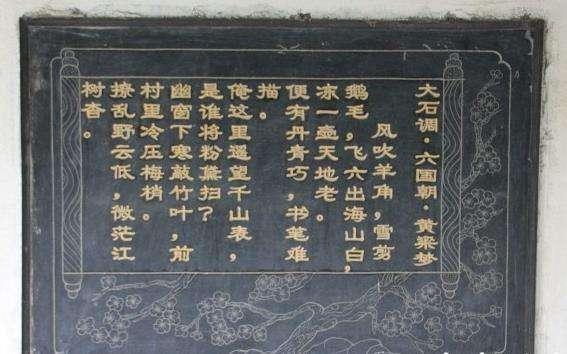 大石调·六国朝·黄粱梦
风吹羊角，雪剪
鹅毛，飞六出海山白，
冻一壶天地老。
便有丹青巧，书笔难
描。
俺这里遥望千山表，
是谁将粉黛扫？
幽窗下寒敲竹叶，前
村里冷压梅梢。
撩乱野云低，微茫江
树杳。